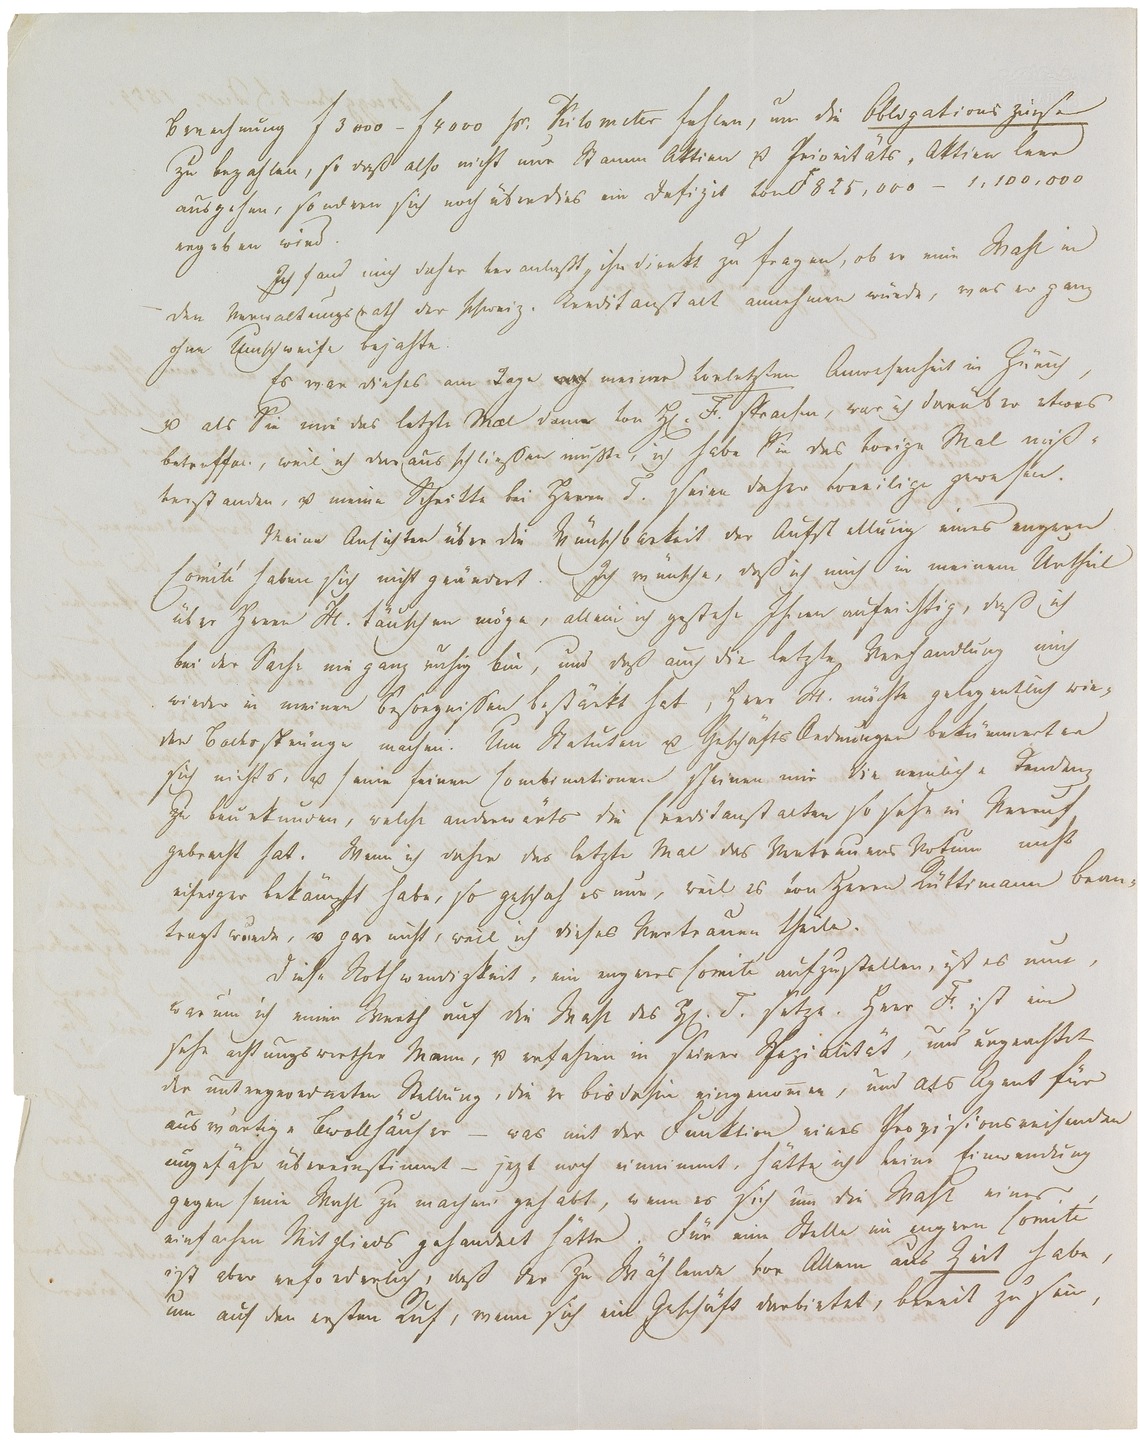 Berechnung f 3000 – f 4000 pr. Kilometer fehlen, um die Obligationszinse
zu bezahlen, so daß also nicht nur Stamm Aktien & Prioritäts-Aktien leer
ausgehen, sondern sich noch überdies ein Defizit von f 825,000 – 1,100,000
ergeben wird.
Ich fand mich daher veranlaßt, ihn direkt zu fragen, ob er eine Wahl in
den Verwaltungsrath der schweiz. Kreditanstalt annehmen würde, was er ganz
ohne Umschweife bejahte.
Es war dieses am Tage nach meiner vorletzten Anwesenheit in Zürich,
& als Sie mir das letzte Mal dann von Hr. F. sprachen, war ich darüber etwas
betroffen, weil ich daraus schließen mußte, ich habe Sie das vorige Mal miß-
verstanden, & meine Schritte bei Herrn F. seien daher voreilige gewesen.
Meine Ansichten über die Wünschbarkeit der Aufstellung eines engern
Comité haben sich nicht geändert. Ich wünsche, daß ich mich in meinem Urtheil
über Herrn H. täuschen möge, allein ich gestehe Ihnen aufrichtig, daß ich
bei der Sache nie ganz ruhig bin, und daß auch die letzte Verhandlung mich
wieder in meinen Besorgnissen bestärkt hat, Herr H. möchte gelegentlich wie-
der Bocksprünge machen. Um Statuten & Geschäfts Ordnungen bekümmert er
sich nichts, & seine feinen Combinationen scheinen mir die nemliche Tendenz
zu beurkunden, welche anderwärts die Creditanstalten so sehr in Verruf
gebracht hat. Wenn ich daher das letzte Mal das Vertrauens Votum nicht
eifriger bekämpft habe, so geschah es nur, weil es von Herrn Rüttimann bean-
tragt wurde, & gar nicht, weil ich dieses Vertrauen theile.
Diese Nothwendigkeit, ein engeres Comité aufzustellen, ist es nun,
warum ich einen Werth auf die Wahl des Hr. F. setze. Herr F. ist ein
sehr achtungswerther Mann, & erfahren in seiner Spezialität, und ungeachtet
der untergeordneten Stellung, die er bis dahin eingenommen, und als Agent für
auswärtige Bwollhäuser – was mit der Funktion eines Provisionsreisenden
ungefähr übereinstimmt – jezt noch einnimmt, hätte ich keine Einwendung
gegen seine Wahl zu machen gehabt, wenn es sich um die Wahl eines
einfachen Mitglieds gehandelt hätte. Für eine Stelle im engern Comité
ist aber erforderlich, daß der zu Wählende vor Allem aus Zeit habe,
um auf den ersten Ruf, wenn sich ein Geschäft darbietet, bereit zu sein,